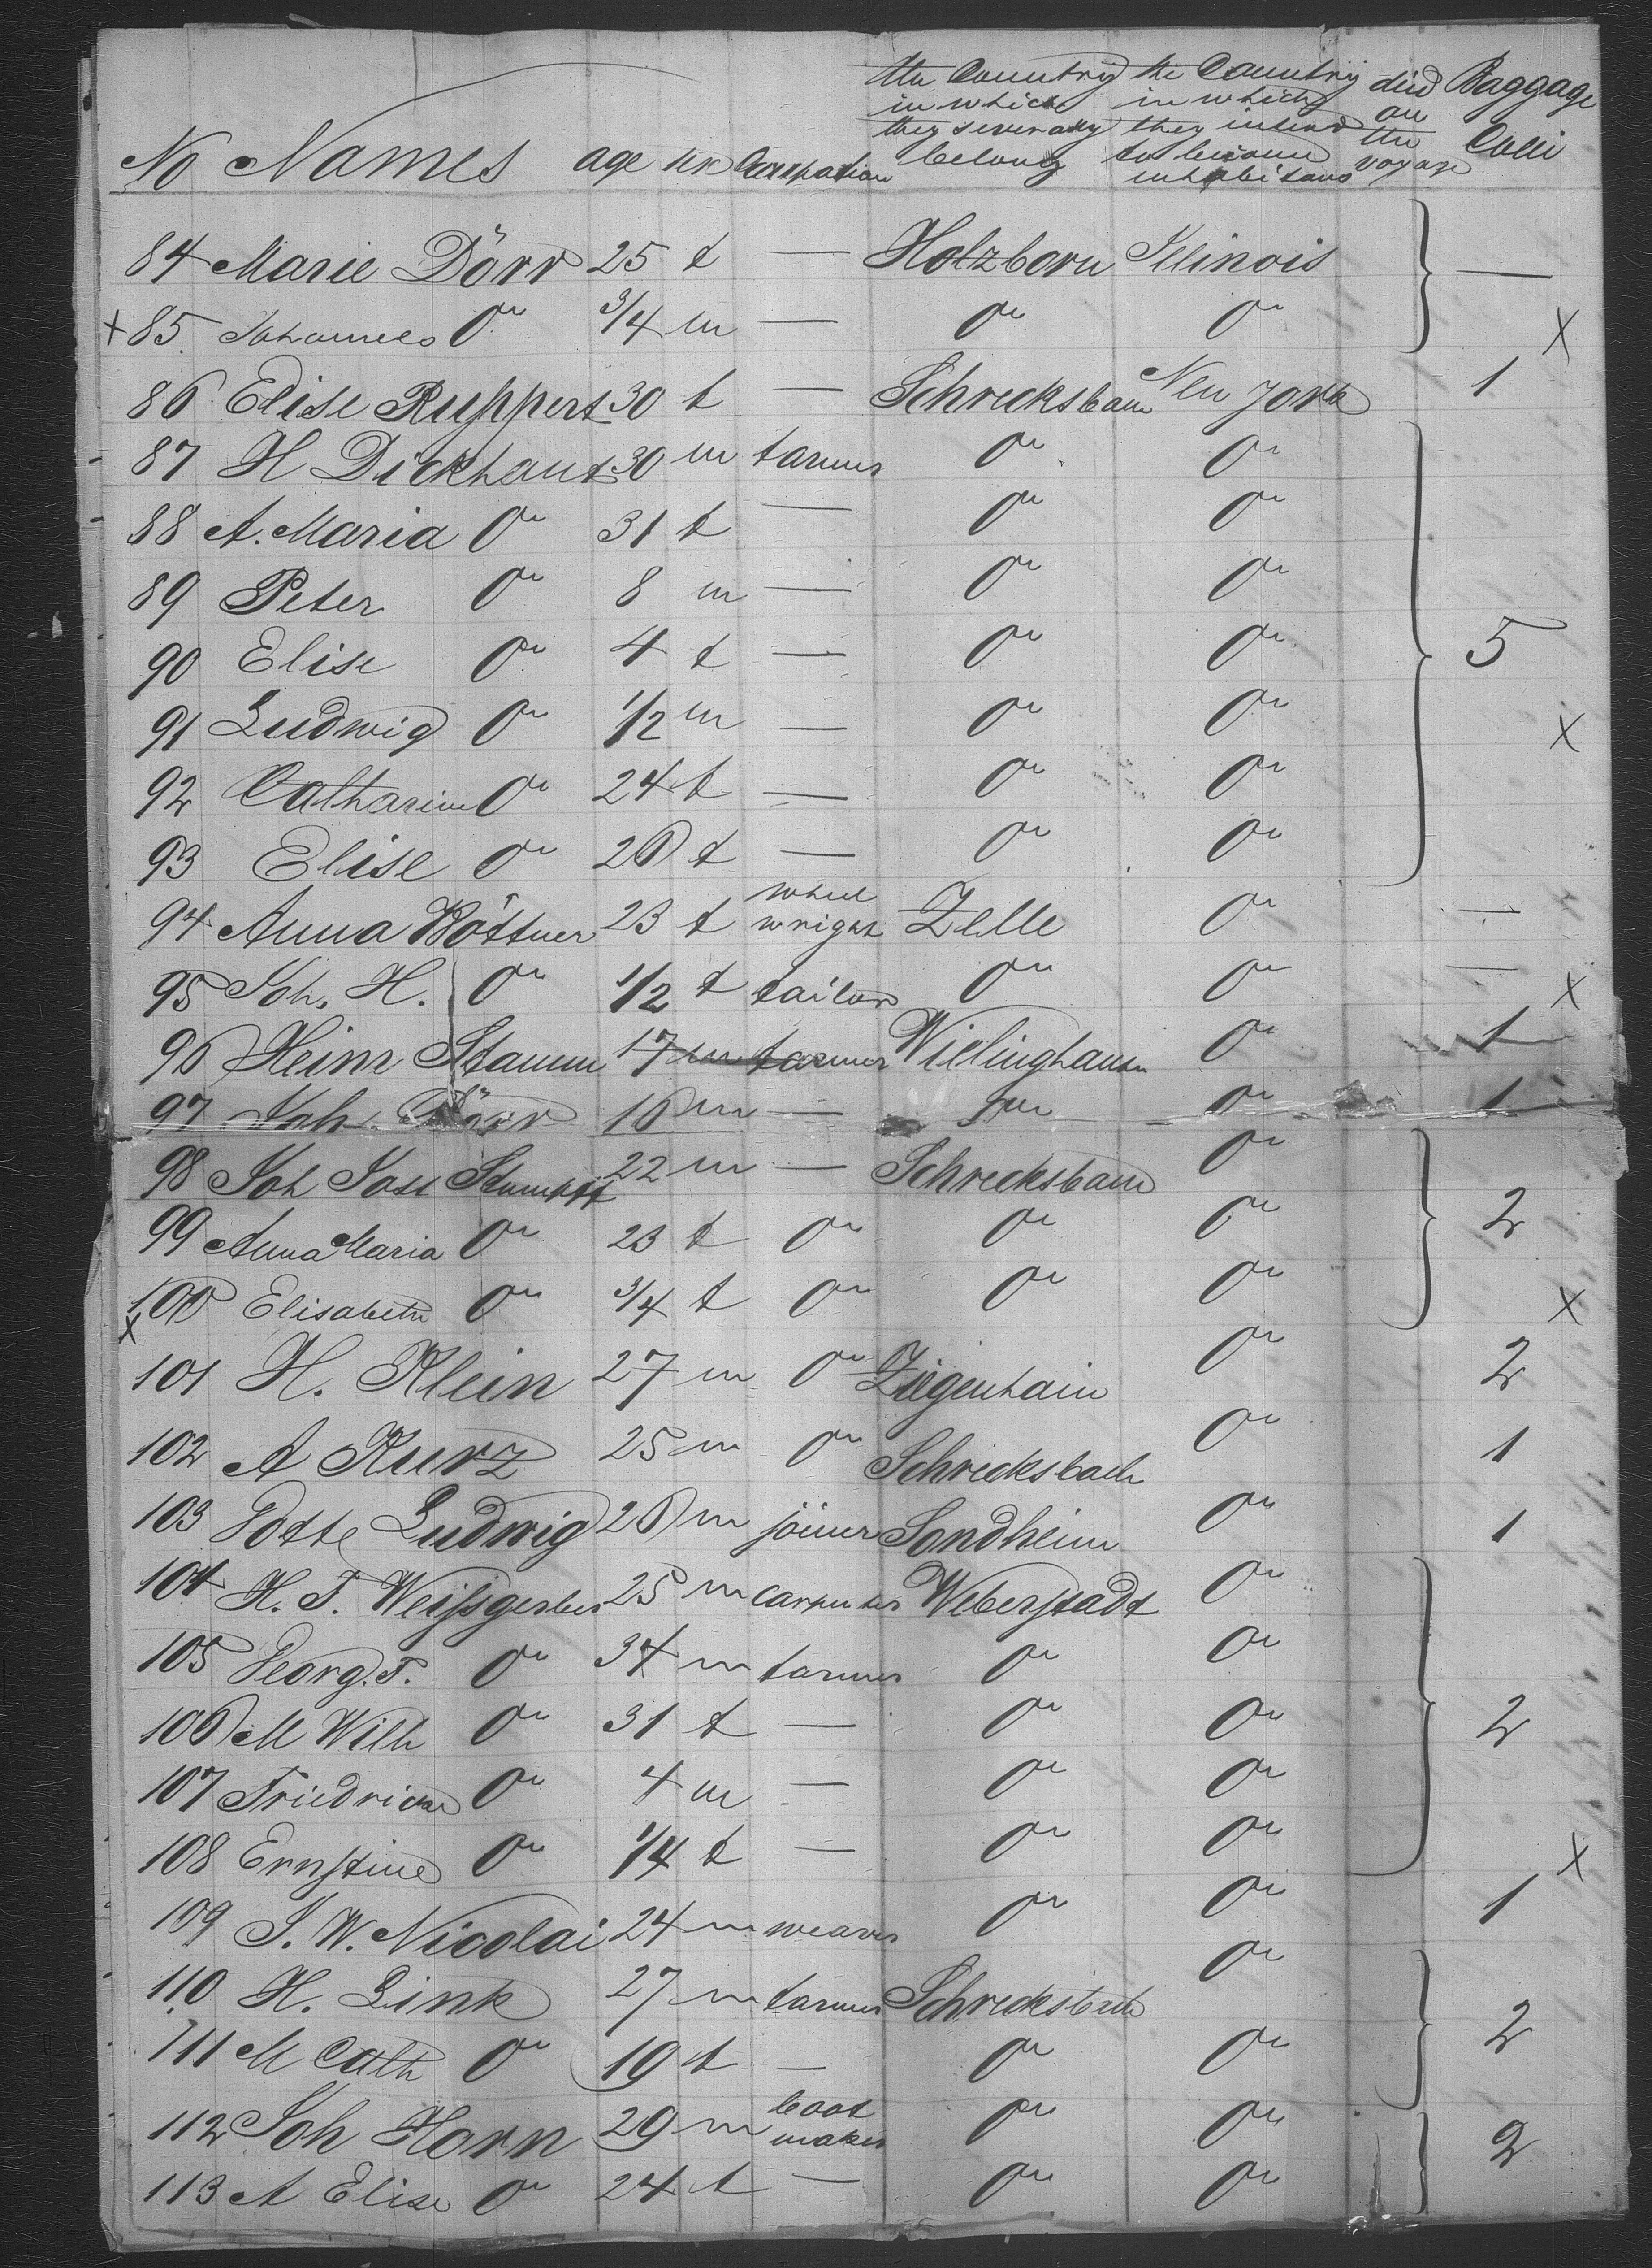 No Names age sex Occupation the Country in which they severally belong the Country in which they intend to become inhabitans died on the voyage Baggage Colli
84 Marie Dörr 25 f — Holzborn Illinois —
x 85 Johannes do 3/4 m — do do x
86 Elise Ruppert 30 f — Schrecksbach New York 1
87 H Dickhaut 30 m farmer do do
88 A. Maria do 31 f — do do
89 Peter do 8 m — do do
90 Elise do 4 f — do do 5
91 Ludwig do 1/2 m — do do x
92 Catharine do 24 f — do do
93 Elise do 26 f — do do
94 Anna Böttner 23 f wheel wright Zelle do —
95 Joh. H. do 1/2 f tailor do do — x
96 Heinr Stamm 17 m farmer Willinghausen do 1
97 Joh. Dörr 16 m — do do 1
98 Joh Jost Stumpff 22 m — Schrecksbach do
99 Anna Maria do 23 f do do do 2
x 100 Elisabeth do 3/4 f do do do x
101 H. Klein 27 m do Ziegenhain do 2
102 A Kurz 25 m do Schrecksbach do 1
103 Potte Ludwig 26 m joiner Sondheim do 1
104 H. F. Weissgerber 25 m carpenter Weberstadt do
105 Georg. F. do 34 m farmer do do
106 M Wilh do 31 f — do do 2
107 Friedricke do 4 m — do do
108 Ernstine do 1/4 f — do do x
109 J. W. Nicolai 24 m weaver do do 1
110 H. Link 27 m farmer Schrecksbach do
111 M Cath do 19 f — do do 2
112 Joh Horn 29 m boot maker do do 2
113 A Elise do 24 f — do do